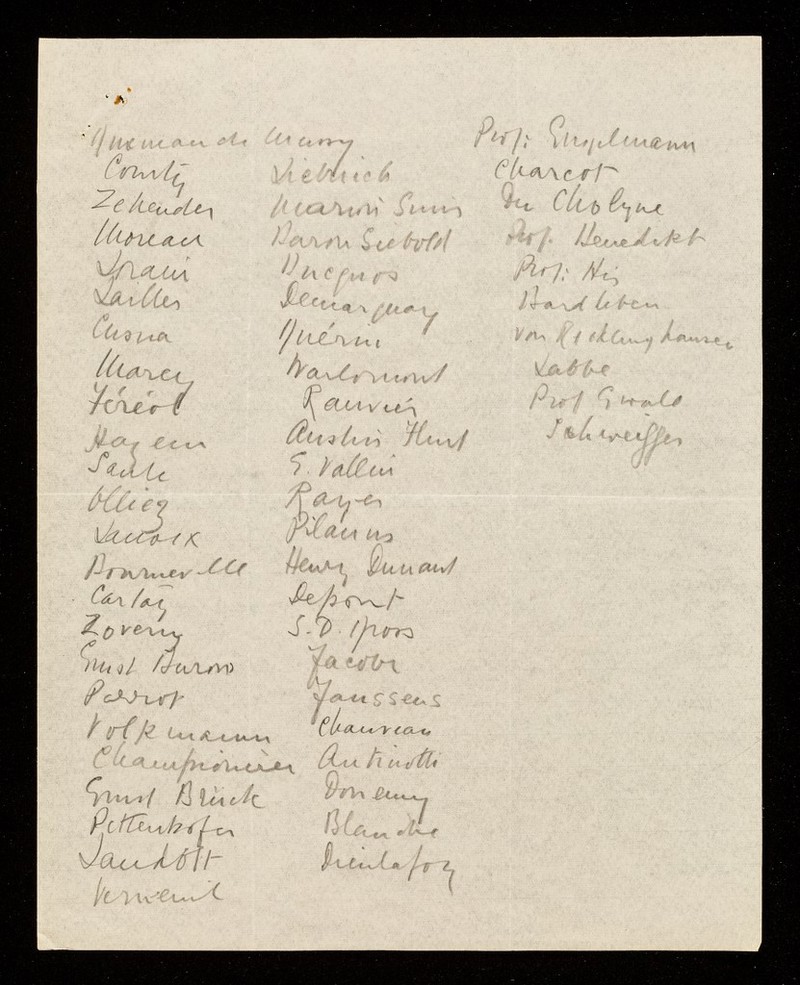 de Mussy
County
Zehender
Moreau
Lorain
Lailler
Cusna
Marey
Féréol
Hayem
Ollier
Bournevelle
Ernst Burow
Parrot
Volkmann
Championiere
Ernst Brück
Pettenkofer
Landolt
Verneuil
Liebreich
Marion Sims
Baron Seebold
Ducquos
Demarquay
Guérin
Warlomont
Ranvier
Austin Flint
E. Vallin
Rayer
Henry Dunant
Depont
Jacobi
Janssens
Chauveau
Antinotti
Blanche
Dieulafoy
Prof: Engelmann
Charcot
Prof. Benedikt
Prof: His
Bardleben
von Recklinghausen
Labbé
Prof Ewald
Schweigger